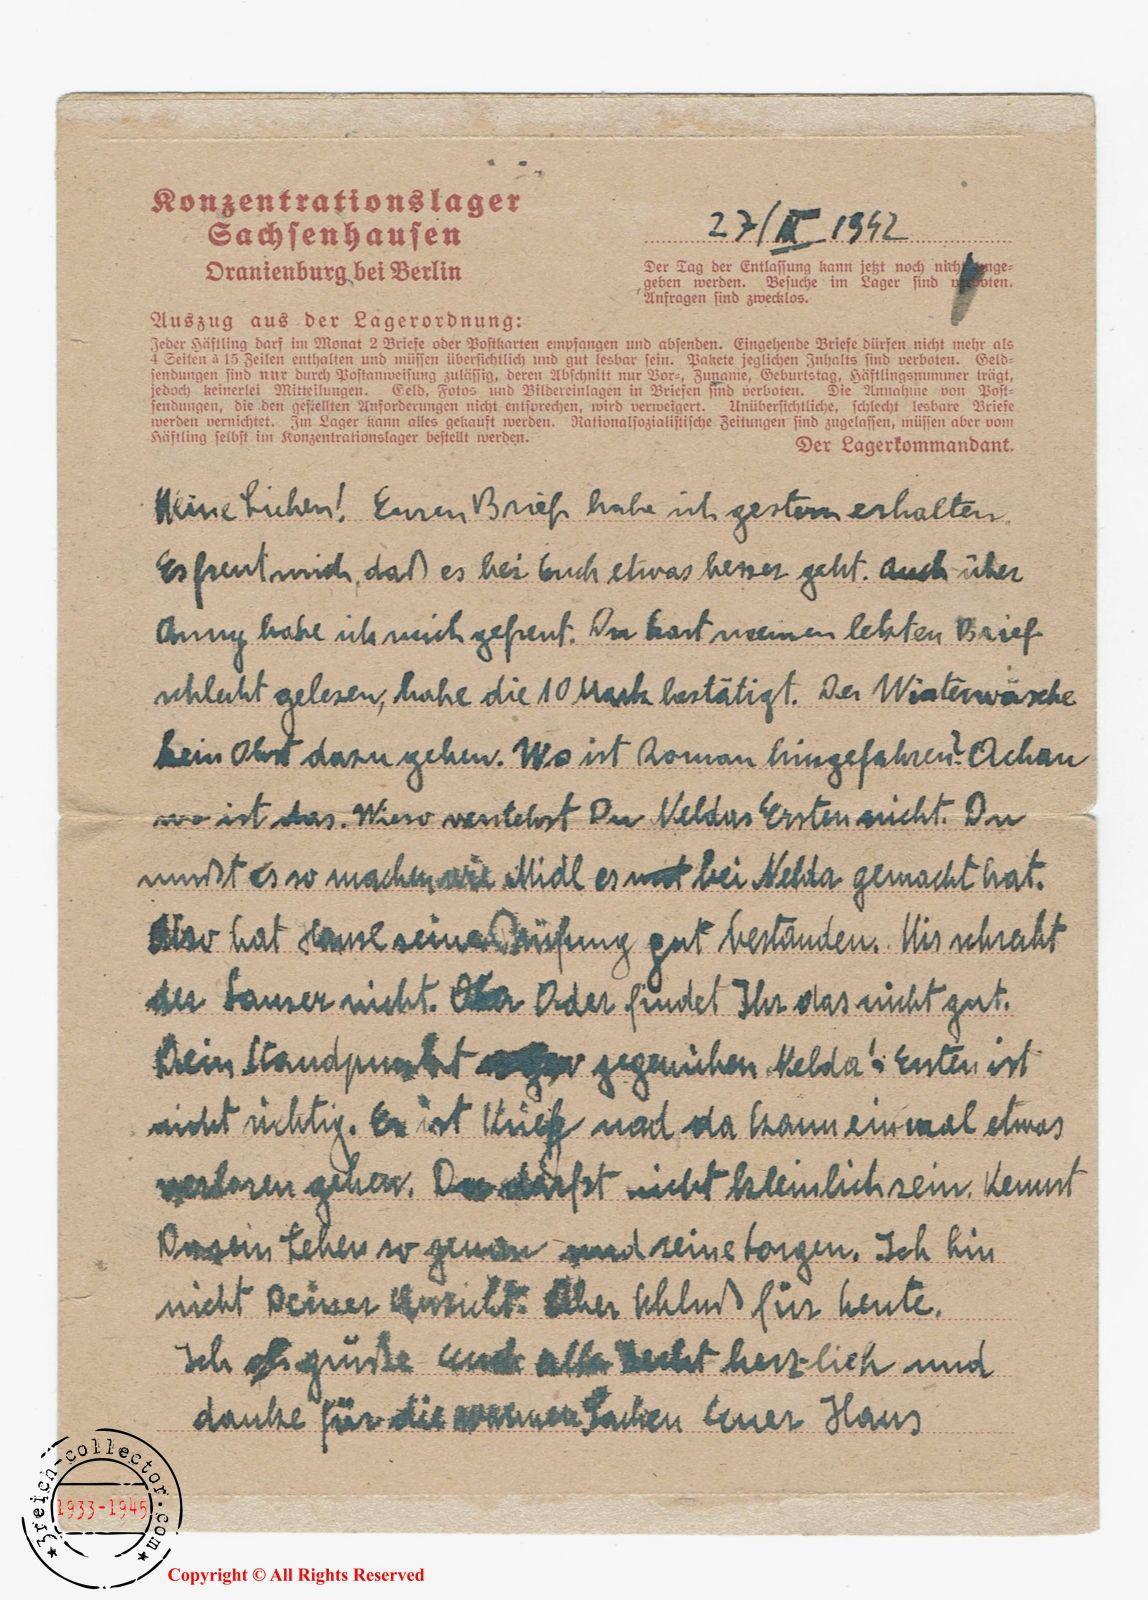 Konzentrationslager
Sachsenhausen
Oranienburg bei Berlin
27/IX 1942
Der Tag der Entlassung kann jetzt noch nicht ange-
geben werden. Besuche im Lager sind verboten.
Anfragen sind zwecklos.
Auszug aus der Lagerordnung:
Jeder Häftling darf im Monat 2 Briefe oder Postkarten empfangen und absenden. Eingehende Briefe dürfen nicht mehr als
4 Seiten à 15 Zeilen enthalten und müssen übersichtlich und gut lesbar sein. Pakete jeglichen Inhalts sind verboten. Geld-
sendungen sind nur durch Postanweisung zulässig, deren Abschnitt nur Vor-, Zuname, Geburtstag, Häftlingsnummer trägt,
jedoch keinerlei Mitteilungen. Geld, Fotos und Bildereinlagen in Briefen sind verboten. Die Annahme von Post-
sendungen, die den gestellten Anforderungen nicht entsprechen, wird verweigert. Unübersichtliche, schlecht lesbare Briefe
werden vernichtet. Im Lager kann alles gekauft werden. Nationalsozialistische Zeitungen sind zugelassen, müssen aber vom
Häftling selbst im Konzentrationslager bestellt werden.
Der Lagerkommandant.
Meine Lieben! Euren Brief habe ich gestern erhalten.
Es freut mich, daß es bei Euch etwas besser geht. Auch über
Anny habe ich mich gefreut. Du hast meinen letzten Brief
schlecht gelesen, habe die 10 Mark bestätigt. Der Winterwäsche
kein Obst dazu geben. Wo ist Roman hingefahren? Achau
wo ist das. Wieso verstehst Du Neldas Ersten nicht. Du
mußt es so machen wie Midl es bei Nelda gemacht hat.
Also hat Hansl seine Prüfung gut bestanden. Mir schreibt
der Lauser nicht. Oder findet Ihr das nicht gut.
Dein Standpunkt gegenüber Nelda's Ersten ist
nicht richtig. Es ist Krieg und da kann einmal etwas
verloren gehen. Du darfst nicht kleinlich sein. Kennst
Du sein Leben so genau und seine Sorgen. Ich bin
nicht Deiner Ansicht. Aber Schluß für heute.
Ich grüße Euch alle recht herzlich und
danke für die warmen Sachen Euer Hans
3reich-collector.com
1933-1945
Copyright © All Rights Reserved